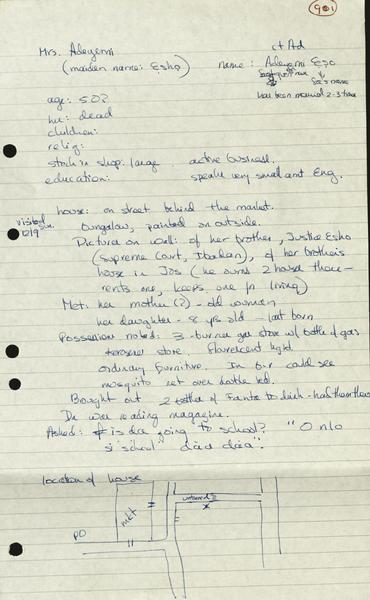 901
Mrs. Adeyemi
ct Ad
(maiden name: Esho)
name: Adeyemi Eso
has been married 2-3 times
age: 50?
hu: dead
children:
relig:
stock in shop: large. active business.
education: speaks very small amt Eng.
house: on street behind the market.
visited
12/9
bungalow, painted on outside.
Picture on wall: of her brother, Justice Esho
(Supreme Court, Ibadan), of her brother's
house in Jos (he owns 2 houses there -
rents one, keeps one for living)
Met: her mother (?) - old women
her daughter - 8 yrs old - last born
Possessions noted: 3-burner gas stove w/ bottle of gas
kerosene stove. flourescent light
ordinary furniture. In b-r could see
mosquito net over double bed.
Bought out 2 bottles of Fanta to drink - half
Da was reading magazine.
Asked: is da going to school? "O nlo
si school" dia dia".
location of house
mkt
PO
untarred